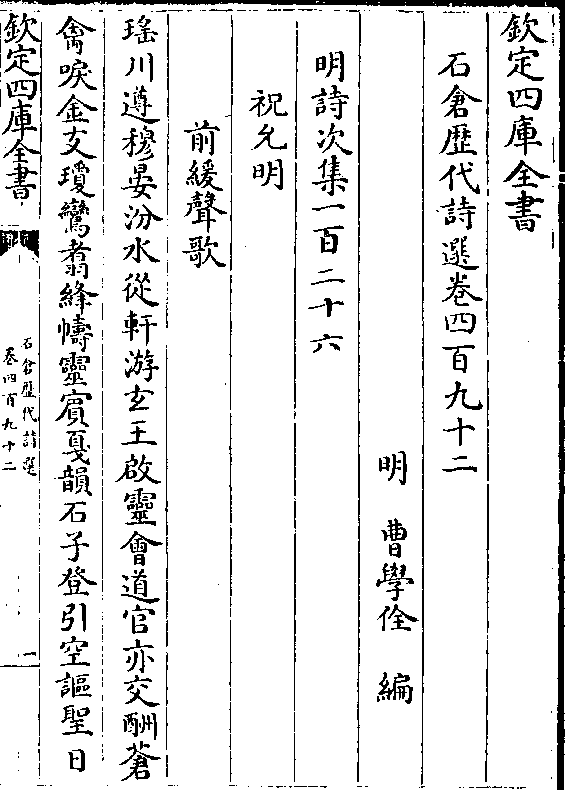 欽定四庫全書
石倉歴代詩選卷四百九十二
明 曹學佺 編
明詩次集一百二十六
祝允明
前緩聲歌
瑤川遵穆晏汾水從軒游玄王啟靈會道官亦交酬蒼
禽唳金支瓊鸞翥絳幬靈賓戛韻石子登引空謳聖日
欽定四庫全書
石倉歴代詩選
卷四百九十二
一